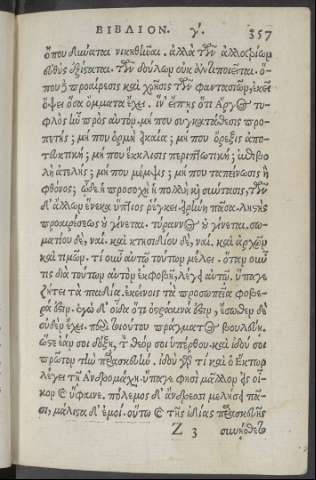 ΒΙΒΛΙΟΝ. γ'. 357
ὅπου δύναται νικηθῆναι. ἀλλὰ τῶν ἀλλοτρίων
εὐθὺς ἐξίσταται. τῶν δούλων οὐκ ἀντιποιεῖται. ὅ-
που γὰρ προαίρεσις καὶ χρῆσις τῶν φαντασιῶν, ἐκεῖ
ὄψει ὅσα ὄμματα ἔχει. ἵν' εἴπης ὅτι Ἄργος τυ-
φλὸς ἦν πρὸς αὐτόν. μή που συγκατάθεσις προ-
πετής; μή που ὁρμὴ εἰκαία; μή που ὄρεξις ἀπο-
τευκτική; μή που ἔκκλισις περιπτωτική; ἐπιβο-
λὴ ἀτελής; μή που μέμψις; μή που ταπείνωσις ἢ
φθόνος; ὧδε ἡ προσοχὴ ἡ πολλὴ καὶ σύντασις, τῶν
δ' ἄλλων ἕνεκα ὕπτιος ῥέγκει. εἰρήνη πᾶσα. λῃστὴς
προαιρέσεως οὐ γίνεται. τύραννος οὐ γίνεται. σω-
ματίου δὲ, ναί. καὶ κτησιδίου δὲ, ναί. καὶ ἀρχῶν
καὶ τιμῶν. τί οὖν αὐτῷ τούτων μέλει. ὅταν οὖν
τις διὰ τούτων αὐτὸν ἐκφοβῇ, λέγει αὐτῷ. ὕπαγε
ζήτει τὰ παιδία. ἐκείνοις τὰ προσωπεῖα φοβε-
ρά ἐστιν. ἐγὼ δ' οἶδα ὅτι ὀστράκινά ἐστιν, ἔσωθεν δὲ
οὐδὲν ἔχει. περὶ τοιούτου πράγματος βουλεύῃ.
ὥστε ἐάν σοι δόξῃ, τὸν θεόν σοι ὑπέρθου. καὶ ἰδού σοι
πρῶτον τὴν παρασκευήν. ἰδοὺ γὰρ τί καὶ ὁ Ἕκτωρ
λέγει τῇ Ἀνδρομάχῃ. ὕπαγε φησὶ μᾶλλον εἰς οἶ-
κον καὶ ὕφαινε. πόλεμος δ' ἄνδρεσσι μελήσει πᾶ-
σι, μάλιστα δ' ἐμοί. οὕτω καὶ τῆς ἰδίας παρασκευῆς
Z 3 συνῄσθετο